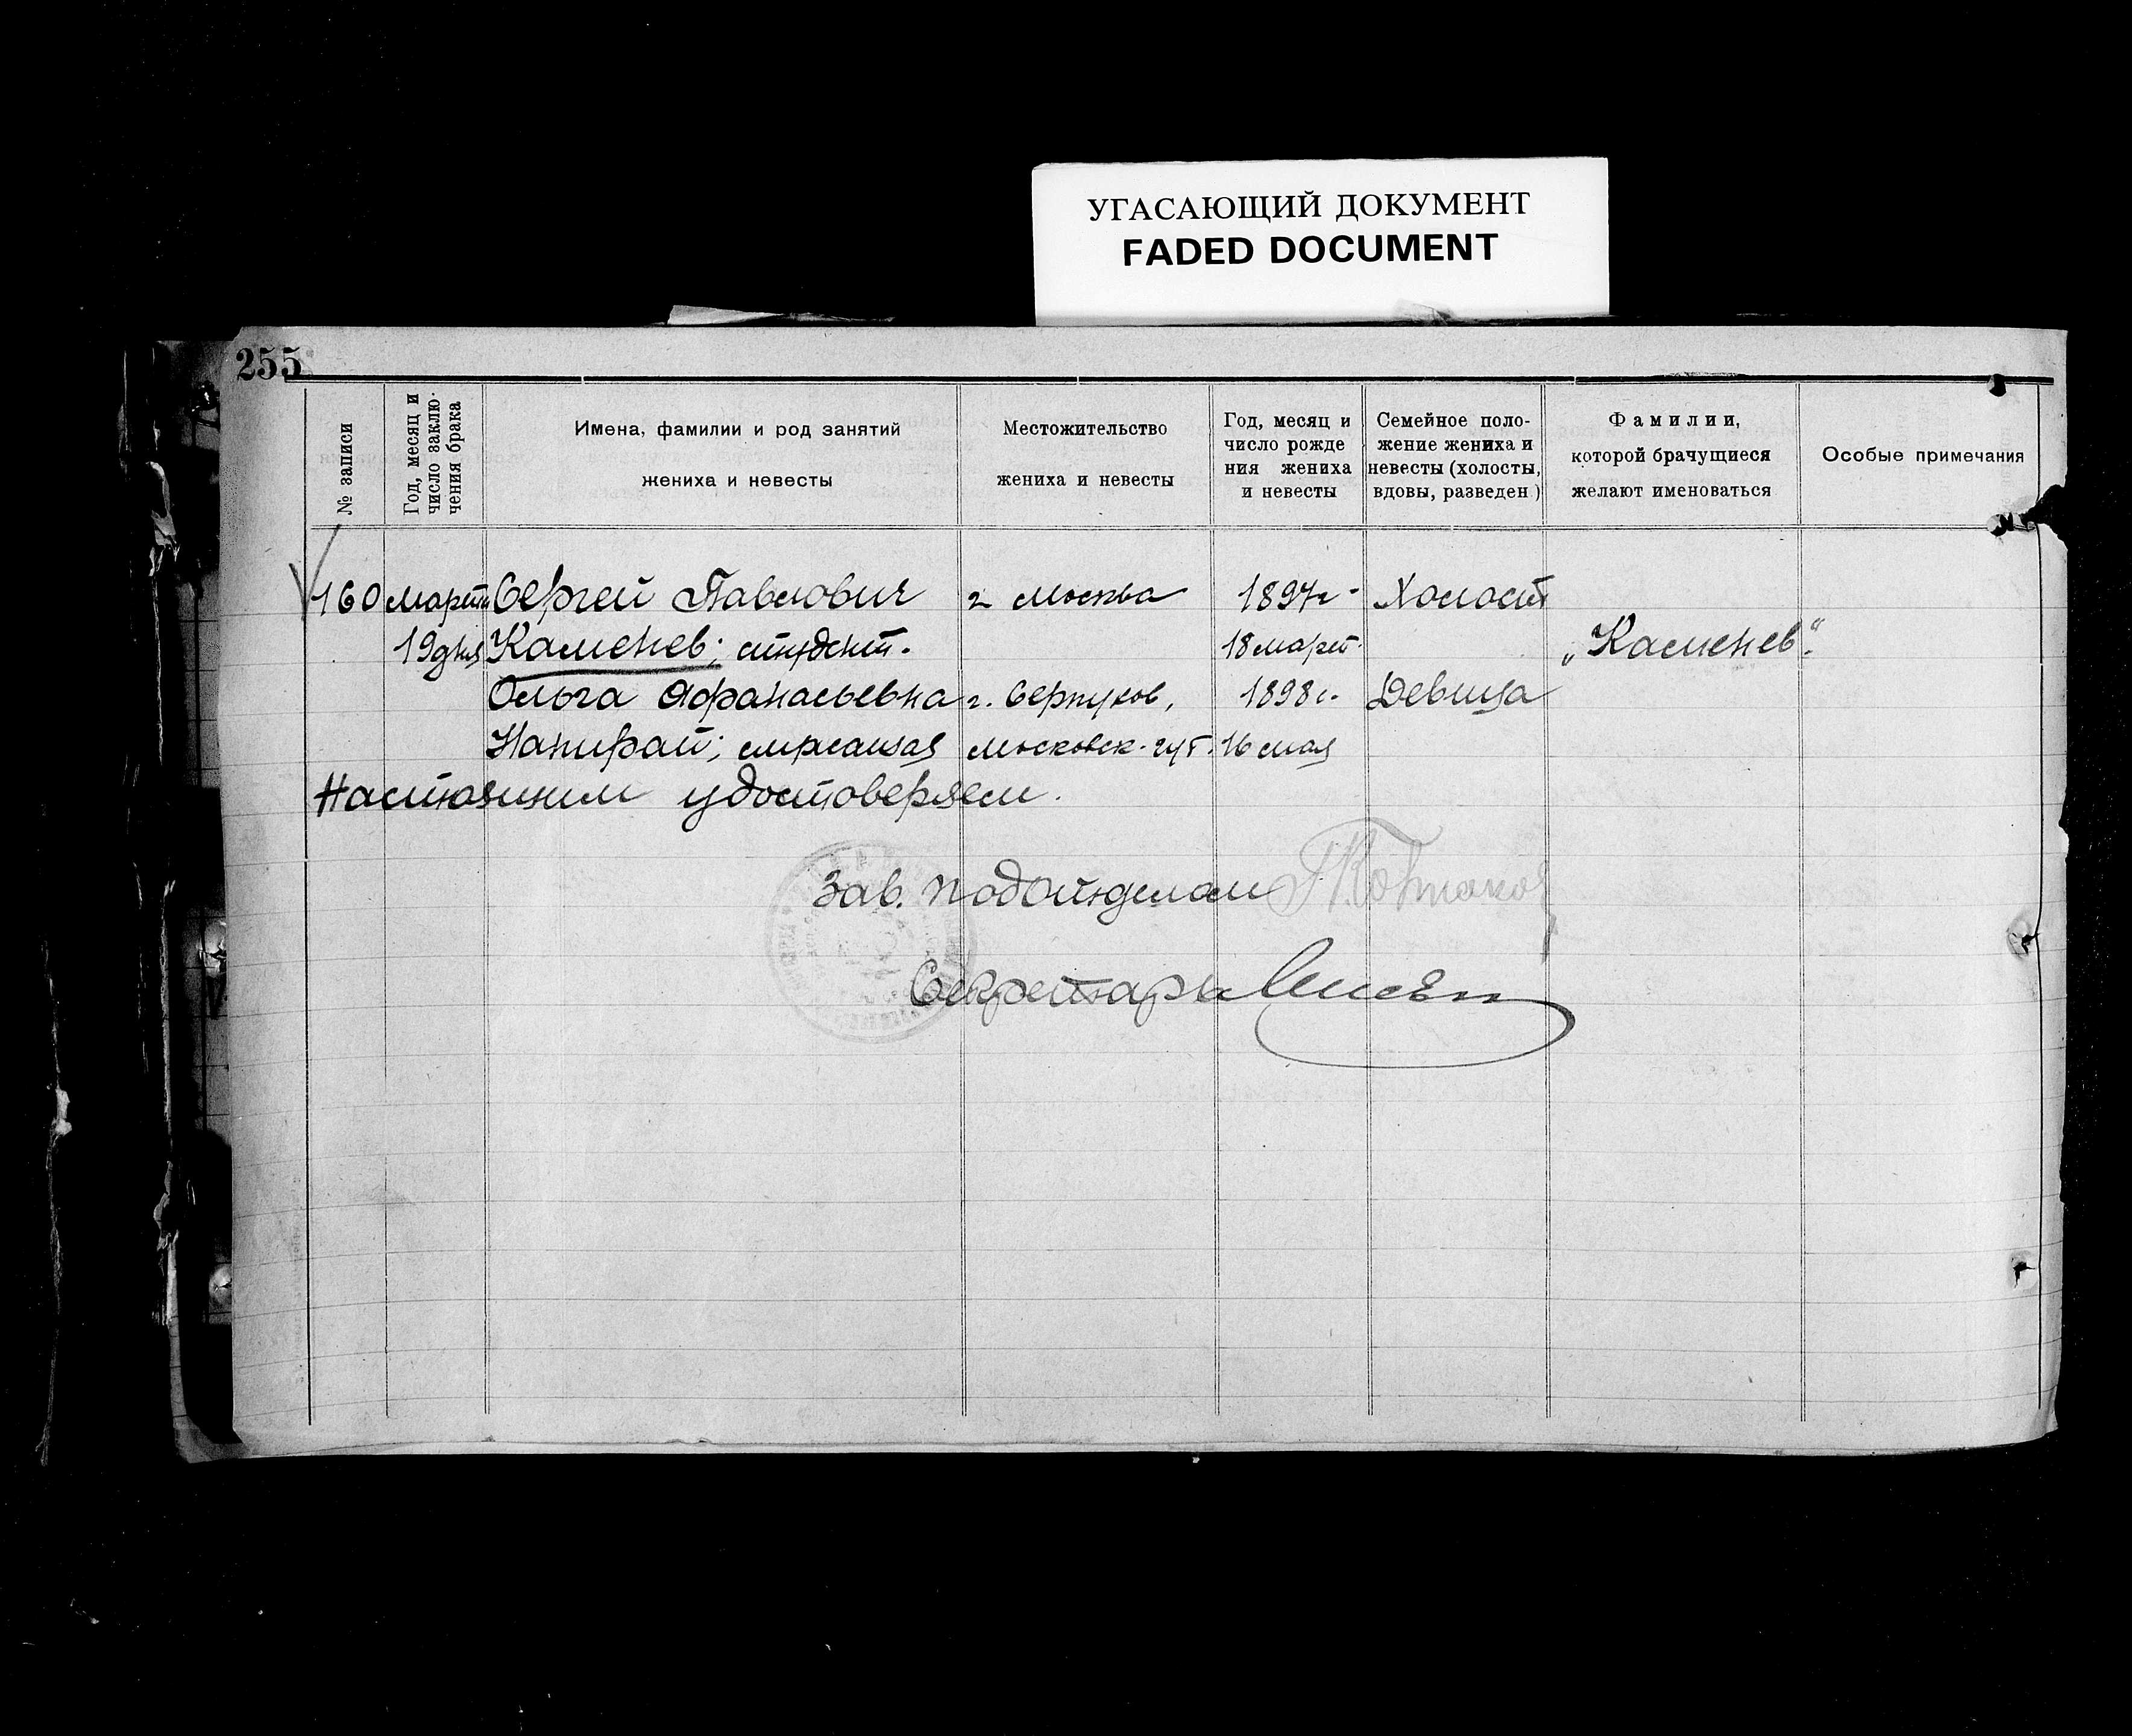 УГАСАЮЩИЙ ДОКУМЕНТ
FADED DOCUMENT
255
№ записи
Год, месяц и
число заклю-
чения брака
Имена, фамилии и род занятий
жениха и невесты
Местожительство
жениха и невесты
Год, месяц и
число рожде
ния жениха
и невесты
Семейное поло-
жение жениха и
невесты (холосты,
вдовы, разведен)
Фамилии,
которой брачущиеся
желают именоваться
Особые примечания
160 марта Сергей Павлович г Москва 1897г. Холост
19 дня Каменев; студент. 18 март. „Каменев".
Ольга Афанасьевна г. Серпухов, 1898г. Девица
Московск. губ. 16 мая
Настоящим удостоверяем.
Зав. подотделом
Секретарь